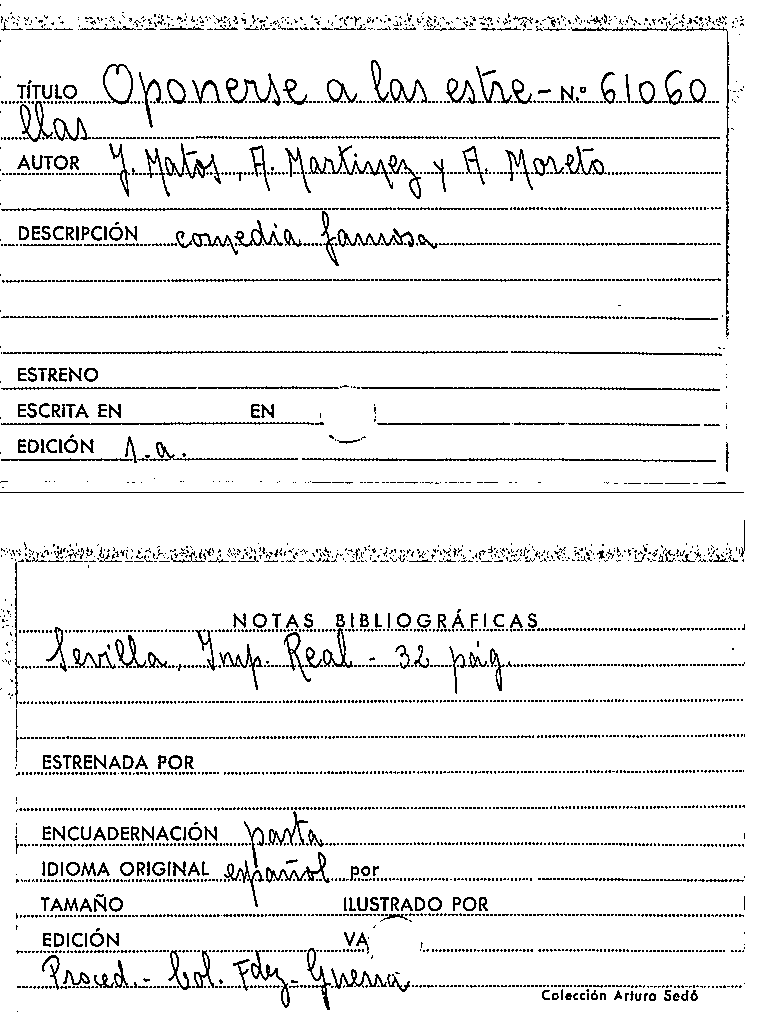 TÍTULO Oponerse a las estre- N.º 61060
llas
AUTOR J. Matos, A. Martinez y A. Moreto
DESCRIPCIÓN comedia famosa
ESTRENO
ESCRITA EN EN
EDICIÓN 1.a.
NOTAS BIBLIOGRÁFICAS
Sevilla, Imp. Real - 32 pág.
ESTRENADA POR
ENCUADERNACIÓN pasta
IDIOMA ORIGINAL español por
TAMAÑO ILUSTRADO POR
EDICIÓN VA
Proced.- Col. Fdez-Guerra
Colección Arturo Sedó